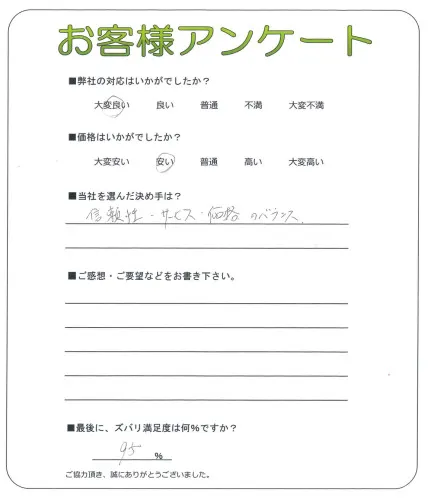 お客様アンケート
■弊社の対応はいかがでしたか？
大変良い 良い 普通 不満 大変不満
■価格はいかがでしたか？
大変安い 安い 普通 高い 大変高い
■当社を選んだ決め手は？
信頼性・サービス・価格のバランス
■ご感想・ご要望などをお書き下さい。
■最後に、ズバリ満足度は何%ですか？
95 %
ご協力頂き、誠にありがとうございました。